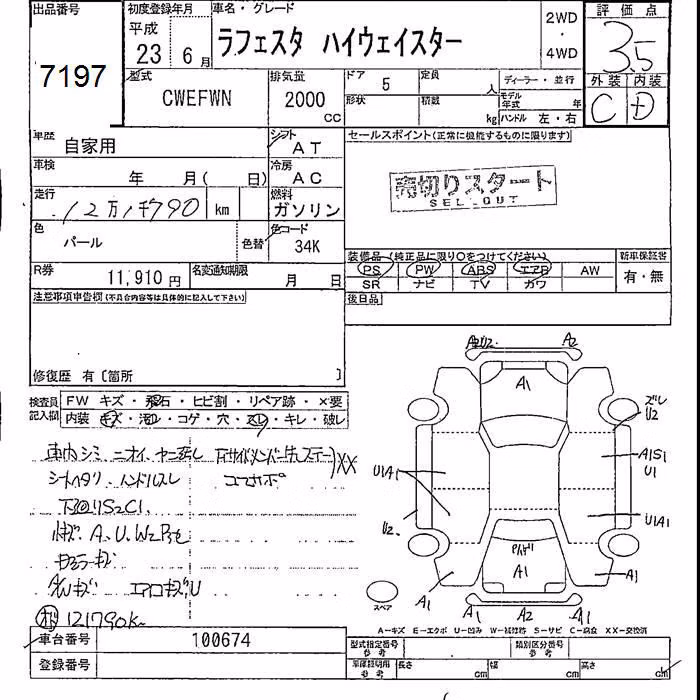 出品番号
7197
初度登録年月
平成
23年 6月
車名・グレード
ラフェスタ ハイウェイスター
2WD
・
4WD
評価点
3.5
外装 内装
C D
型式
CWEFWN
排気量
2000
cc
ドア 5
定員 人
形状
積載 kg
ディーラー・並行
モデル年式 年
ハンドル 左・右
車歴
自家用
シフト
AT
車検
年 月( 日)
冷房
AC
走行
12万1千790 km
燃料
ガソリン
色
パール
色替
色コード
34K
R券
11,910円
名変通知期限
月 日
セールスポイント(正常に機能するものに限ります)
売切りスタート
SELL OUT
装備品(純正品に限り○をつけてください)
PS PW ABS エアB AW
SR ナビ TV カワ
新車保証書
有・無
後日品
注意事項申告欄(不具合内容等は具体的に記入して下さい)
修復歴 有〔箇所 〕
検査員記入欄
FW キズ・飛石・ヒビ割・リペア跡・×要
内装 キズ・汚レ・コゲ・穴・スレ・キレ・破レ
車内シミ ニオイ
シートヘタリ ハンドルスレ
下回りS2C1
A、U、W2
AWキズ エアロキズU
121790K
A2 U2
A2
A1
ズレ
U2
A1S1
U1
U1A1
U2
U1A1
A1
A1
A1
A1
A2
A1
スペア
A-キズ E-エクボ U-凹み W-補修跡 S-サビ C-腐食 XX-交換済
車台番号
100674
登録番号
型式指定番号
参考
類別区分番号
参考
車庫証明用
参考
長さ cm
幅 cm
高さ cm